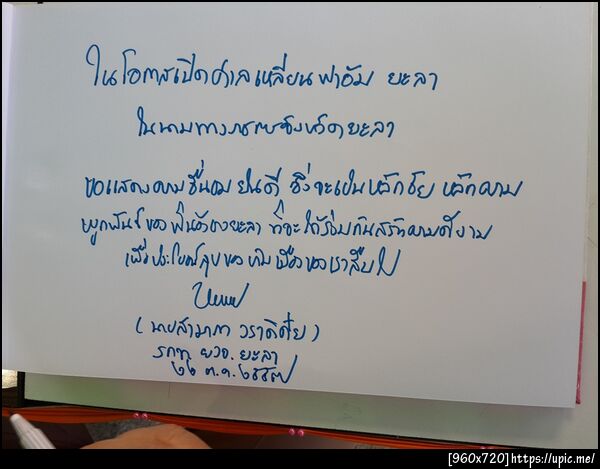 ในโอกาสเปิดศาลเหลี่ยนฟาอัม ยะลา
ในนามทางราชการจังหวัดยะลา
ขอแสดงความชื่นชม ยินดี ซึ่งจะเป็นหลักชัย หลักความ
ผูกพันธ์ของพี่น้องชาวยะลา ที่จะได้ร่วมกันสร้างความดีงาม
เพื่อประโยชน์สุขของบ้านเมืองของเราสืบไป
(นายสามารถ วราดิศัย)
รกท. ผวจ. ยะลา
๒๒ ต.ค. ๒๕๕๗
[960x720]https://upic.me/